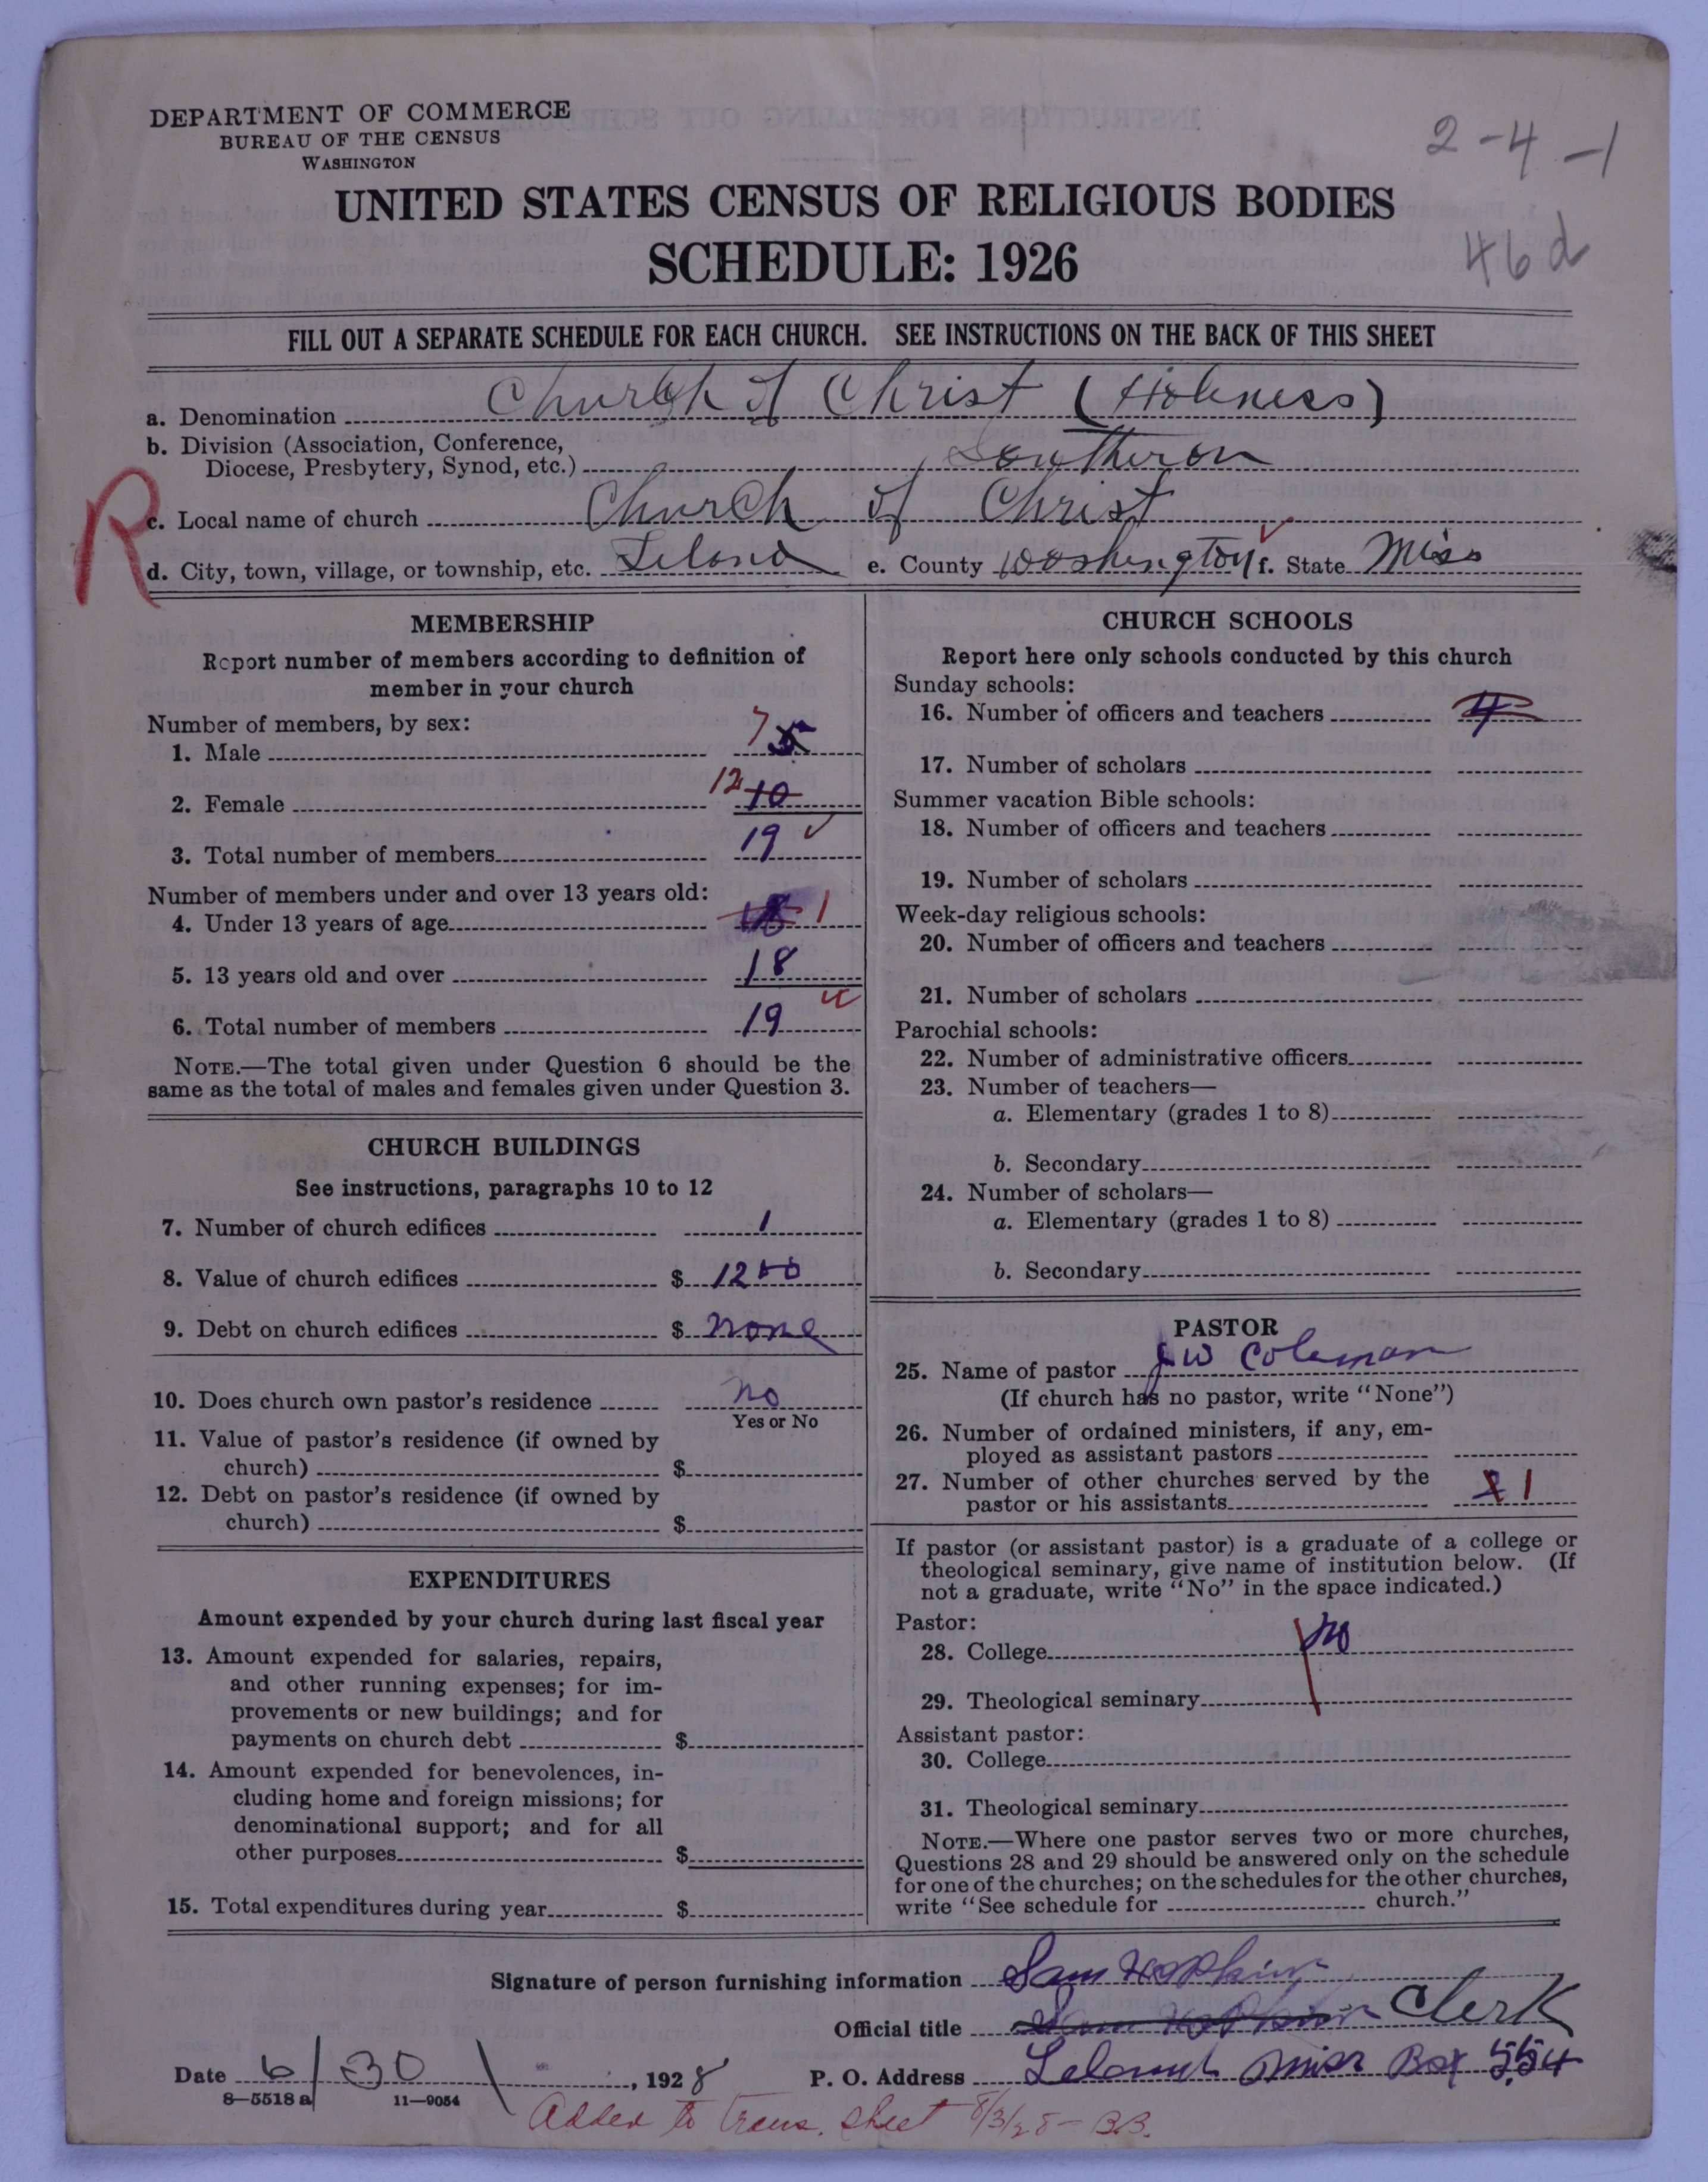 DEPARTMENT OF COMMERCE
BUREAU OF THE CENSUS
WASHINGTON
2-4-1
UNITED STATES CENSUS OF RELIGIOUS BODIES
SCHEDULE: 1926
46d
FILL OUT A SEPARATE SCHEDULE FOR EACH CHURCH. SEE INSTRUCTIONS ON THE BACK OF THIS SHEET
a. Denomination Church of Christ (Holiness)
b. Division (Association, Conference,
Diocese, Presbytery, Synod, etc.) Southeron
R
c. Local name of church Church of Christ
d. City, town, village, or township, etc. Leland e. County Washington f. State Miss
MEMBERSHIP
Report number of members according to definition of
member in your church
Number of members, by sex:
1. Male 7
2. Female 12 10
3. Total number of members 19 ✓
Number of members under and over 13 years old:
4. Under 13 years of age 1
5. 13 years old and over 18
6. Total number of members 19
NOTE.—The total given under Question 6 should be the
same as the total of males and females given under Question 3.
CHURCH BUILDINGS
See instructions, paragraphs 10 to 12
7. Number of church edifices 1
8. Value of church edifices $ 1200
9. Debt on church edifices $ none
10. Does church own pastor's residence no
Yes or No
11. Value of pastor's residence (if owned by
church) $
12. Debt on pastor's residence (if owned by
church) $
EXPENDITURES
Amount expended by your church during last fiscal year
13. Amount expended for salaries, repairs,
and other running expenses; for im-
provements or new buildings; and for
payments on church debt $
14. Amount expended for benevolences, in-
cluding home and foreign missions; for
denominational support; and for all
other purposes $
15. Total expenditures during year $
CHURCH SCHOOLS
Report here only schools conducted by this church
Sunday schools:
16. Number of officers and teachers 4
17. Number of scholars
Summer vacation Bible schools:
18. Number of officers and teachers
19. Number of scholars
Week-day religious schools:
20. Number of officers and teachers
21. Number of scholars
Parochial schools:
22. Number of administrative officers
23. Number of teachers—
a. Elementary (grades 1 to 8)
b. Secondary
24. Number of scholars—
a. Elementary (grades 1 to 8)
b. Secondary
PASTOR
25. Name of pastor J W Coleman
(If church has no pastor, write "None")
26. Number of ordained ministers, if any, em-
ployed as assistant pastors
27. Number of other churches served by the
pastor or his assistants 1
If pastor (or assistant pastor) is a graduate of a college or
theological seminary, give name of institution below. (If
not a graduate, write "No" in the space indicated.)
Pastor:
28. College no
29. Theological seminary
Assistant pastor:
30. College
31. Theological seminary
NOTE.—Where one pastor serves two or more churches,
Questions 28 and 29 should be answered only on the schedule
for one of the churches; on the schedules for the other churches,
write "See schedule for church."
Signature of person furnishing information Sam Hopkins
Official title Sam Hopkins Clerk
Date 6/30, 1928 P. O. Address Leland Miss Box 554
8—5518 a 11—9054
Added to trans. sheet 8/3/28 - B.B.